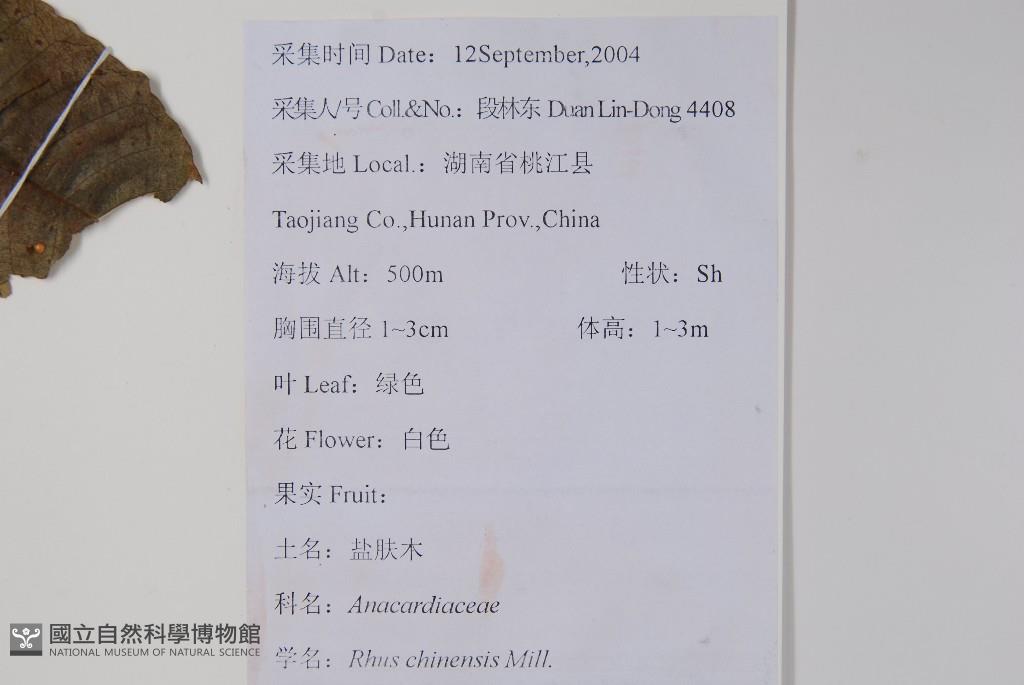 采集时间 Date：12September,2004
采集人/号 Coll.&No.：段林东 Duan Lin-Dong 4408
采集地 Local.：湖南省桃江县
Taojiang Co.,Hunan Prov.,China
海拔 Alt：500m 性状：Sh
胸围直径 1~3cm 体高：1~3m
叶 Leaf：绿色
花 Flower：白色
果实 Fruit：
土名：盐肤木
科名：Anacardiaceae
学名：Rhus chinensis Mill.
國立自然科學博物館
NATIONAL MUSEUM OF NATURAL SCIENCE